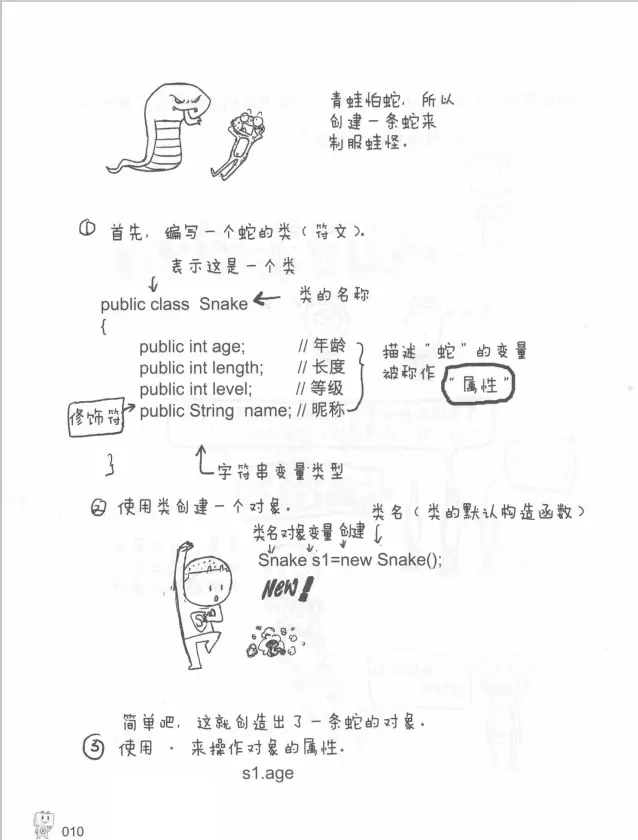 青蛙怕蛇，所以
创建一条蛇来
制服蛙怪．
① 首先，编写一个蛇的类（符文）。
表示这是一个类
public class Snake
类的名称
{
public int age; // 年龄
public int length; // 长度
public int level; // 等级
public String name; // 昵称
描述“蛇”的变量
被称作
“属性”
修饰符
}
字符串变量类型
② 使用类创建一个对象．
类名（类的默认构造函数）
类名 对象变量 创建
Snake s1=new Snake();
New!
简单吧，这就创造出了一条蛇的对象．
③ 使用 · 来操作对象的属性．
s1.age
010